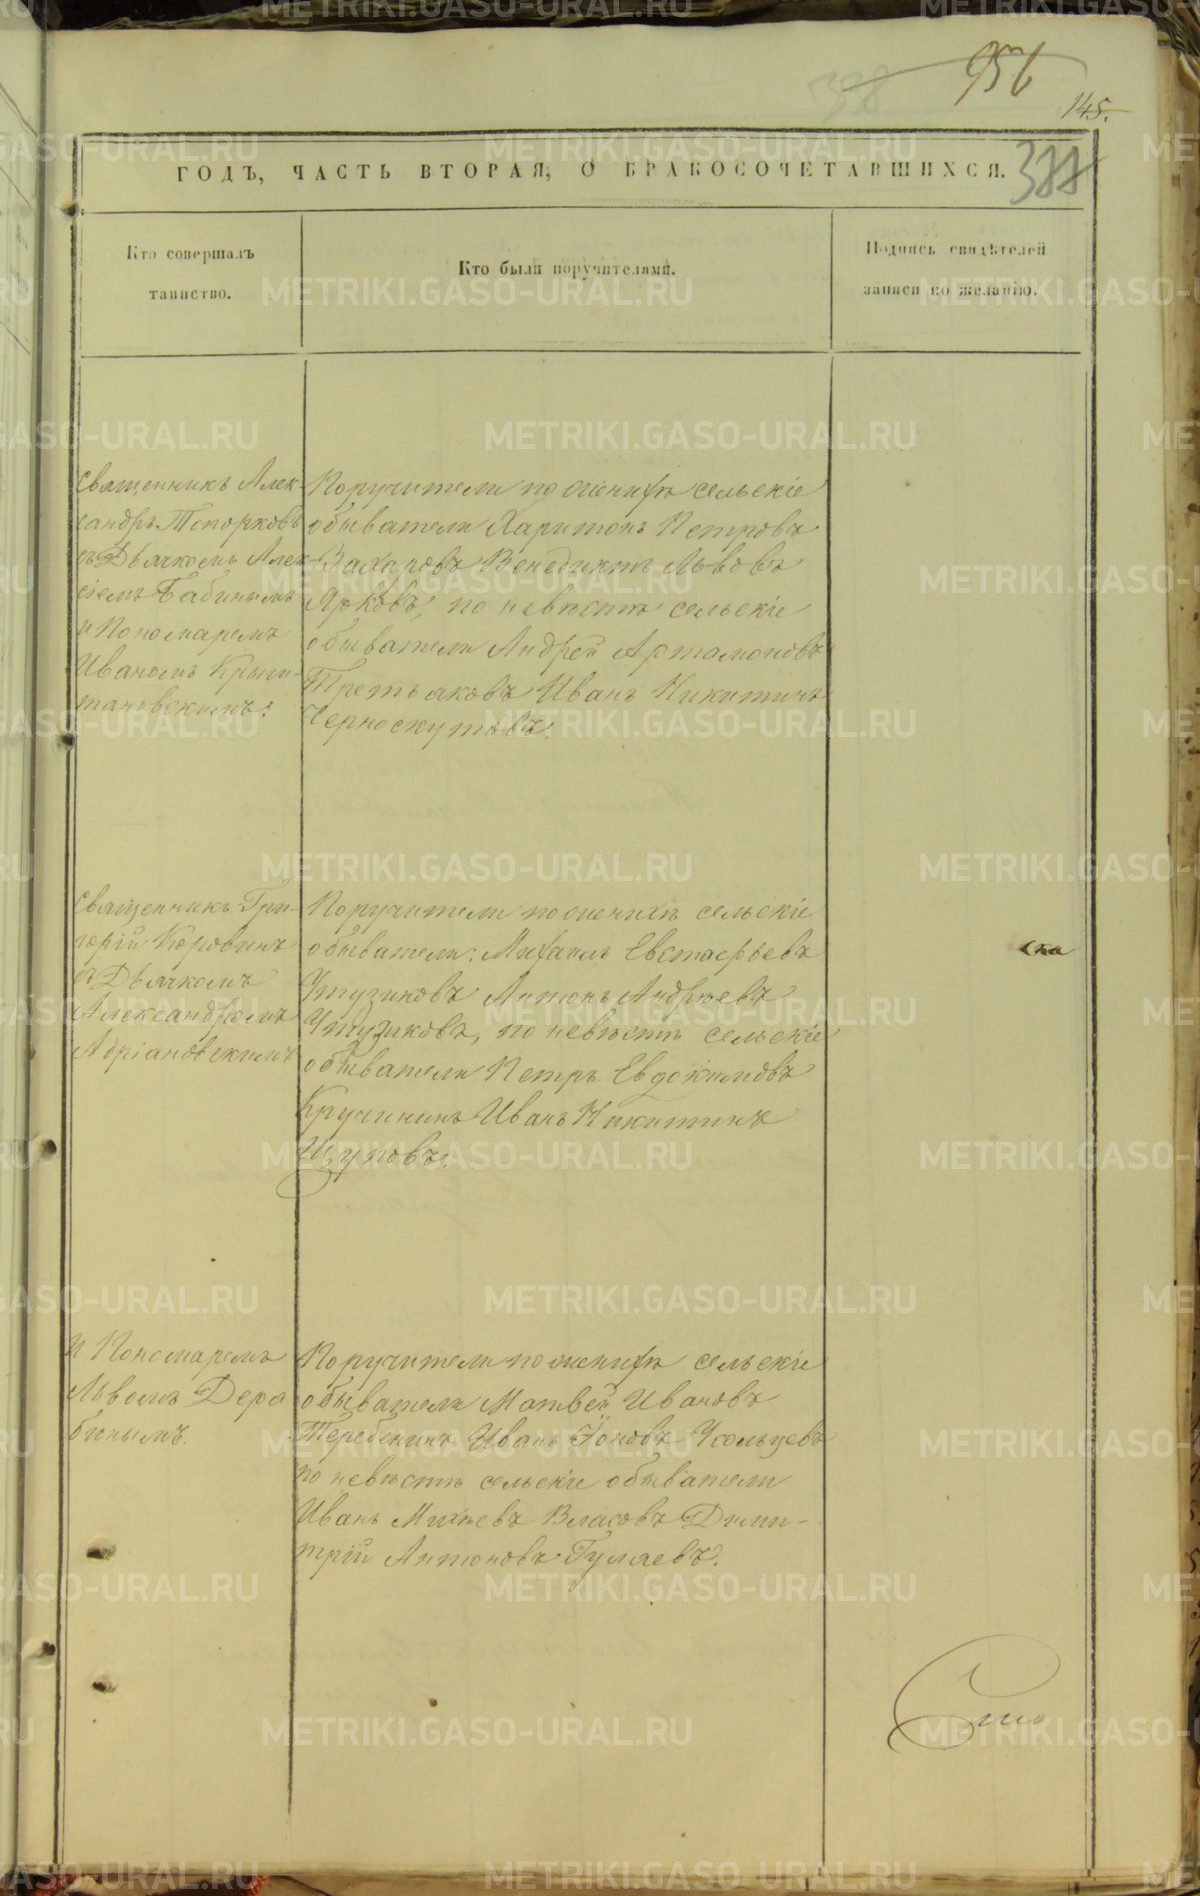 956
145.
388
ГОДЪ, ЧАСТЬ ВТОРАЯ, О БРАКОСОЧЕТАВШИХСЯ.
Кто совершалъ
таинство.
Кто были поручителями.
Подпись свидѣтелей
записи по желанію.
Священникъ Алек-
сандръ Топорковъ
съ Дьячкомъ Алек-
сіемъ Бабинымъ
и Пономаремъ
Иваномъ
Поручители по женихѣ сельскіе
обыватели Харитонъ Петровъ
Захаровъ Венедиктъ Львовъ
Ярковъ, по невѣстѣ сельскіе
обыватели Андрей Артамоновъ
Третьяковъ Иванъ Никитинъ
Черноскутовъ.
Священникъ Гри-
горій Коровинъ
съ Дьячкомъ
Александромъ
Адріановскимъ
Поручители по женихѣ сельскіе
обыватели: Михаилъ Евстафьевъ
Утузиковъ Антонъ Андреевъ
Утузиковъ, по невѣстѣ сельскіе
обыватели Петръ Евдокимовъ
Кручининъ Иванъ Никитинъ
Щуповъ.
и Пономаремъ
Львомъ Деря
бинымъ.
Поручители по женихѣ сельскіе
обыватели Матвей Ивановъ
Теребенинъ Иванъ Іоновъ Усольцевъ
по невѣстѣ сельскіе обыватели
Иванъ Михѣевъ Власовъ Дими-
трій Антоновъ Гуляевъ.
METRIKI.GASO-URAL.RU